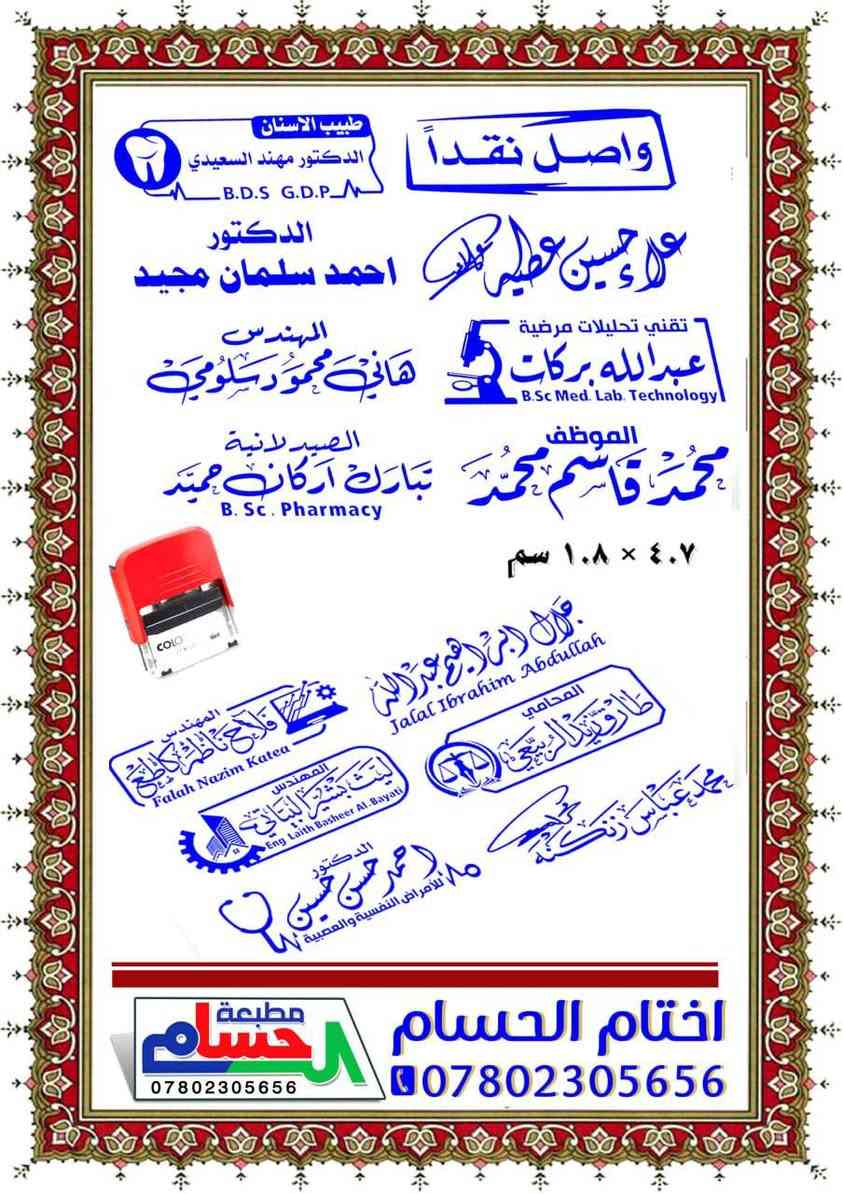 واصل نقداً
طبيب الاسنان
الدكتور مهند السعيدي
B.D.S G.D.P
علاء حسين عطيه
الدكتور
احمد سلمان مجيد
تقني تحليلات مرضية
عبدالله بركات
B.Sc Med. Lab. Technology
المهندس
هاني محمود سلومي
الموظف
محمد قاسم محمد
الصيدلانية
تبارك اركان حميد
B. Sc. Pharmacy
٤.٧ × ١.٨ سم
COLO
جلال ابراهيم عبدالله
Jalal Ibrahim Abdullah
المهندس
فلاح ناظم كاطع
Falah Nazim Katea
المحامي
الربيعي
المهندس
ليث بشير البياتي
Eng Laith Basheer Al-Bayati
محمد عباس زنكنه
الدكتور
احمد حسن حسين
للأمراض النفسية والعصبية
اختام الحسام
07802305656
مطبعة
الحسام
07802305656